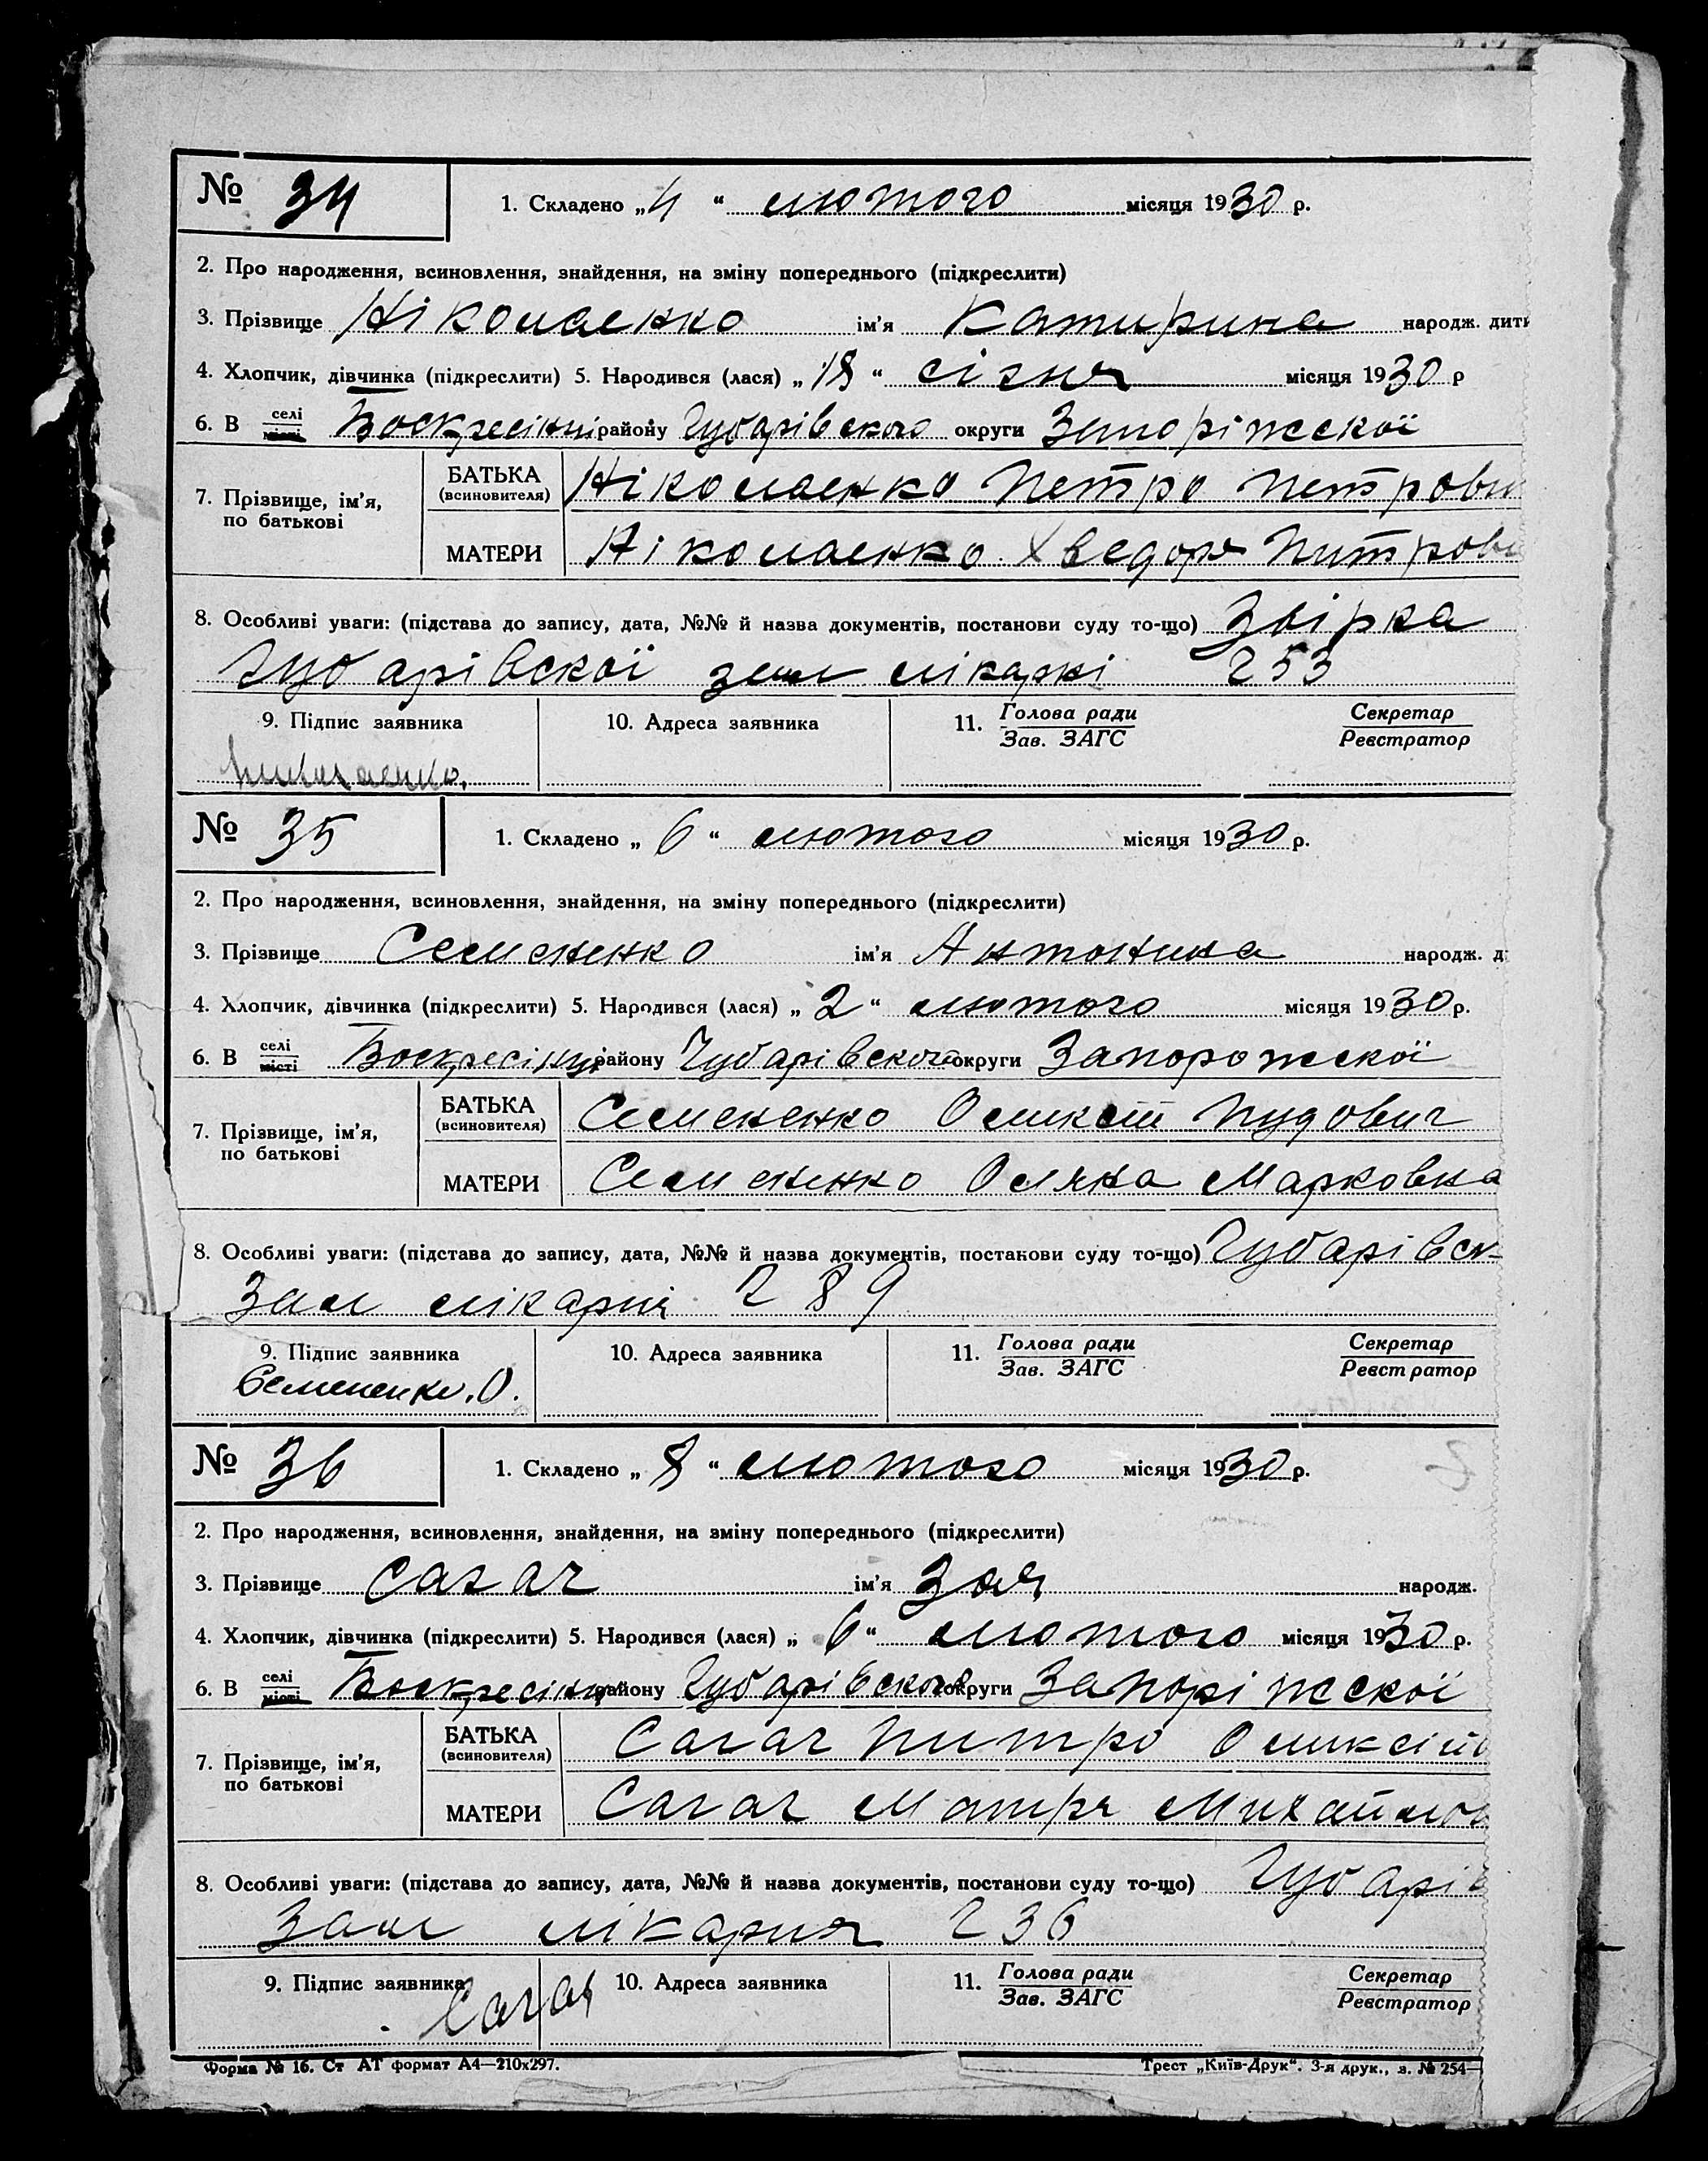 № 34 1. Складено „4“ лютого місяця 1930 р.
2. Про народження, всиновлення, знайдення, на зміну попереднього (підкреслити)
3. Прізвище Ніколаенко ім'я Катирина народж. дити
4. Хлопчик, дівчинка (підкреслити) 5. Народився (лася) „18“ січня місяця 1930 р
6. В селі місті Воскресінці району Чубарівского округи Запоріжскої
БАТЬКА (всиновителя) Ніколаенко Петро Петрови
7. Прізвище, ім'я, по батькові
МАТЕРИ Ніколаенко Хведоря Питрови
8. Особливі уваги: (підстава до запису, дата, №№ й назва документів, постанови суду то-що) Звірка
Чубарівскої зем лікарні 253
9. Підпис заявника 10. Адреса заявника 11. Голова ради Зав. ЗАГС Секретар Реєстратор
№ 35 1. Складено „6“ лютого місяця 1930 р.
2. Про народження, всиновлення, знайдення, на зміну попереднього (підкреслити)
3. Прізвище Семененко ім'я Антонина народж. д
4. Хлопчик, дівчинка (підкреслити) 5. Народився (лася) „2“ лютого місяця 1930 р.
6. В селі місті Воскресінці району Чубарівского округи Запорожскої
БАТЬКА (всиновителя) Семененко Оликсій Пудович
7. Прізвище, ім'я, по батькові
МАТЕРИ Семененко Оляна Марковна
8. Особливі уваги: (підстава до запису, дата, №№ й назва документів, постанови суду то-що) Чубарівск-
Зам лікарні 289
9. Підпис заявника 10. Адреса заявника 11. Голова ради Зав. ЗАГС Секретар Реєстратор
Семененко.О.
№ 36 1. Складено „8“ лютого місяця 1930 р.
2. Про народження, всиновлення, знайдення, на зміну попереднього (підкреслити)
3. Прізвище Сагач ім'я Зоя народж.
4. Хлопчик, дівчинка (підкреслити) 5. Народився (лася) „6“ лютого місяця 1930 р.
6. В селі місті Воскресінці району Чубарівского округи Запоріжскої
БАТЬКА (всиновителя) Сагач Питро Оликсійо
7. Прізвище, ім'я, по батькові
МАТЕРИ Сагач Мотря Михайлов
8. Особливі уваги: (підстава до запису, дата, №№ й назва документів, постанови суду то-що) Чубарів
Зам лікарня 236
9. Підпис заявника 10. Адреса заявника 11. Голова ради Зав. ЗАГС Секретар Реєстратор
Сагач
Форма № 16. Ст АТ формат А4—210х297. Трест „Київ-Друк“. 3-я друк., з. № 254—